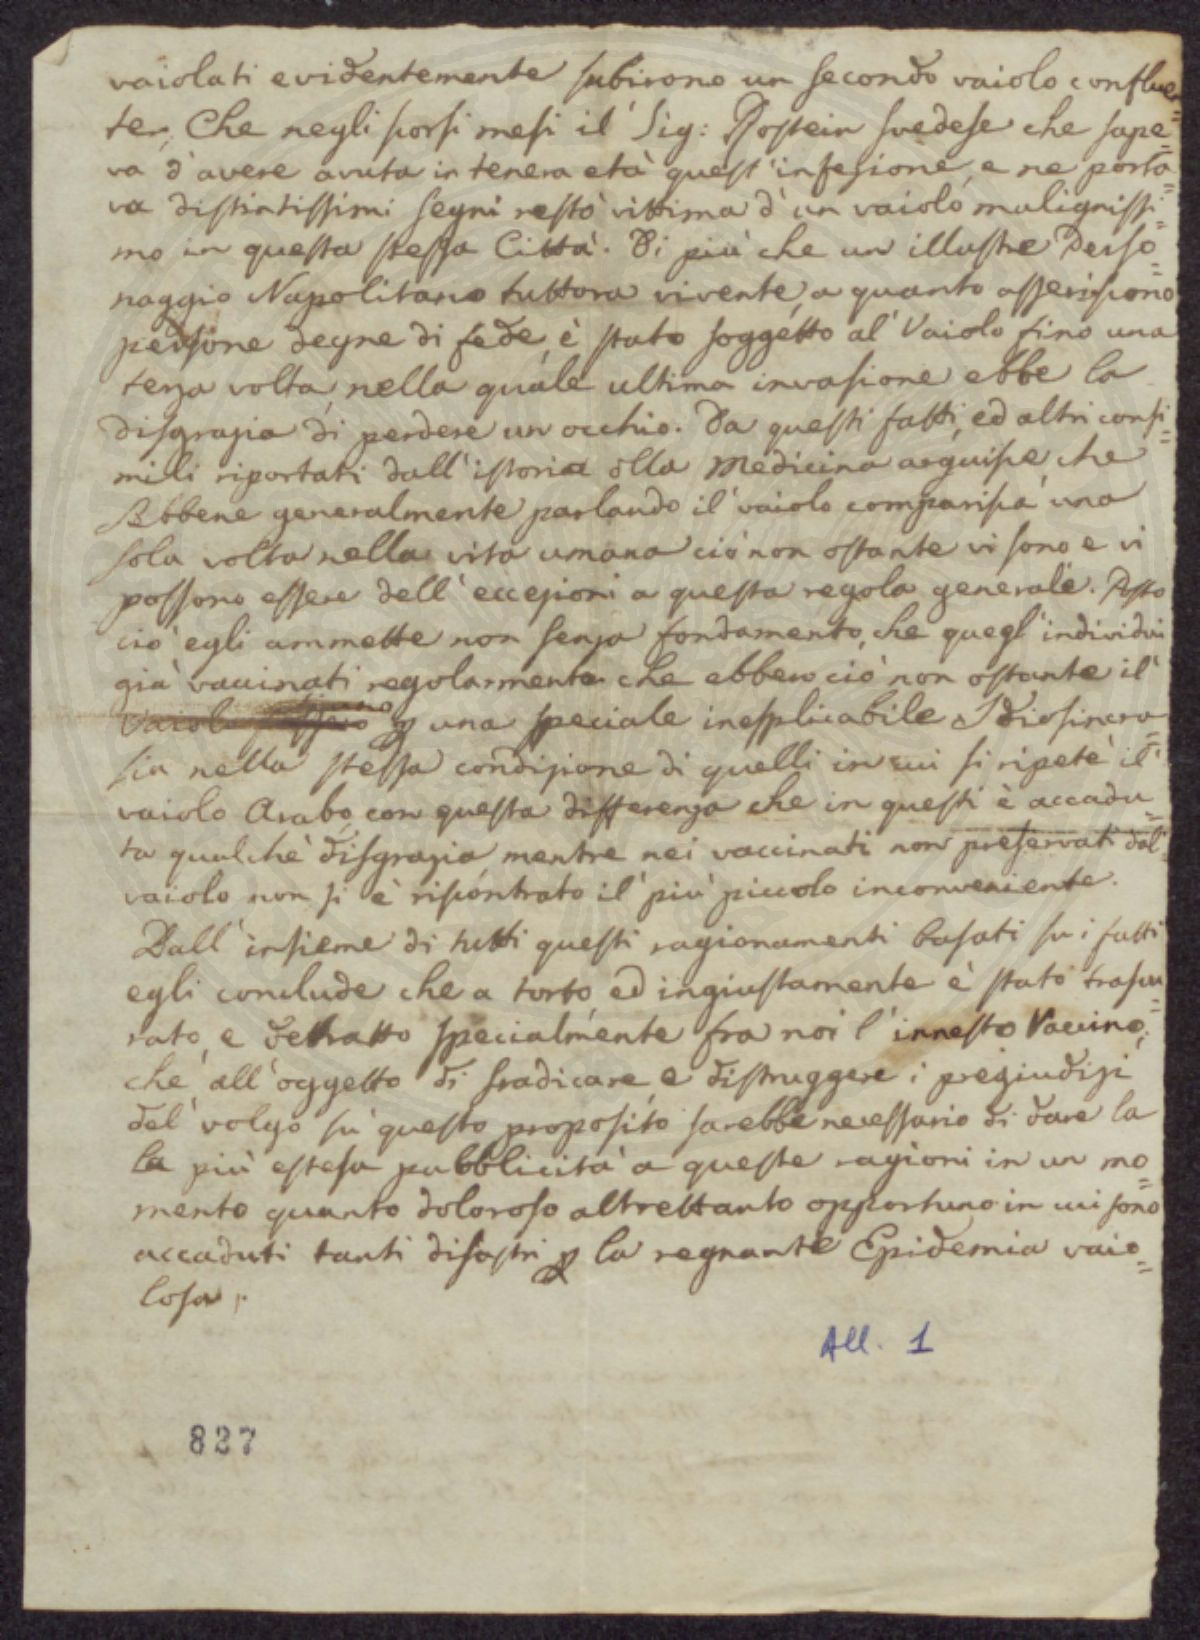 vaiolati evidentemente subirono un secondo vaiolo confluen=
te, Che negli scorsi mesi il Sig: Rostein svedese che sape=
va d'avere avuta in tenera età quest'infezione, e ne porta=
va distintissimi segni restò vittima d'un vaiolo malignissi=
mo in questa stessa Città. Di più che un illustre Perso=
naggio Napolitano tuttora vivente, a quanto asseriscono
persone degne di fede, è stato soggetto al Vaiolo fino una
terza volta, nella quale ultima invasione ebbe la
disgrazia di perdere un occhio. Da questi fatti, ed altri consi=
mili riportati dall'istoria della Medicina arguisce che
Abbene generalmente parlando il vaiolo comparisca una
sola volta nella vita umana ciò non ostante vi sono e vi
possono essere dell'eccezioni a questa regola generale. Posto
ciò egli ammette non senza fondamento, che quegl'individui
già vaccinati regolarmente che ebbero ciò non ostante il
Vaiolo p una speciale inesplicabile Idiosincra=
sia nella stessa condizione di quelli in cui si ripetè il
vaiolo Arabo, con questa differenza che in questi è accadu=
ta qualche disgrazia mentre nei vaccinati non preservati dal
vaiolo non si è riscontrato il più piccolo inconveniente.
Dall'insieme di tutti questi ragionamenti basati su i fatti
egli conclude che a torto ed ingiustamente è stato trascu=
rato, e detratto specialmente fra noi l'innesto Vaccino,
che all'oggetto di sradicare e distruggere i pregiudizi
del volgo su questo proposito sarebbe necessario di dare la
la più estesa pubblicità a queste ragioni in un mo=
mento quanto doloroso altrettanto opportuno in cui sono
accaduti tanti disastri p la regnante Epidemia vaio=
losa.
All. 1
827